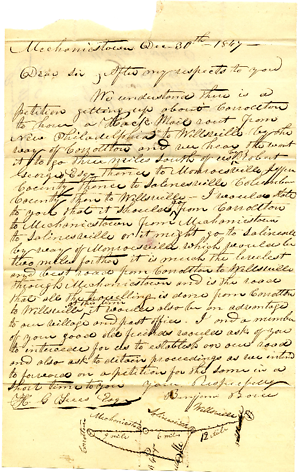 Mechanicstown Dec 30th - 1847 -
Dear Sir, After my respects to you
We understand there is a
petition getting up about Carrollton
to have a Mail rout from
New Philadelphia to Wellsville by the
way of Carrollton and we hear the want
it to go three miles South of us
George Esqr thence to Monroesville
County thence to Salineville
County then to Wellsville - I would state
to you that it should go from Carrollton
to Mechanicstown from Mechanicstown
to Salinesville or it might go to Salinesville
by way of Monroesville which would be
two miles farther it is much the
and best road from Carrollton to Wellsville
through Mechanicstown and is the road
that all the travelling is done from Carrollton
to Wellsville it would also be an advantage
to our village and post office. I and a number
of your good old friends would ask of you
to intercede for us to establish on our road
and also ask to detain proceedings as we intend
to forward on a petition for the same in a
short time to you Yours Respectfully
Esq Benjamin
Carrollton Mechanicstown Salinesville Wellsville
9 mils 6 mils 12 mils